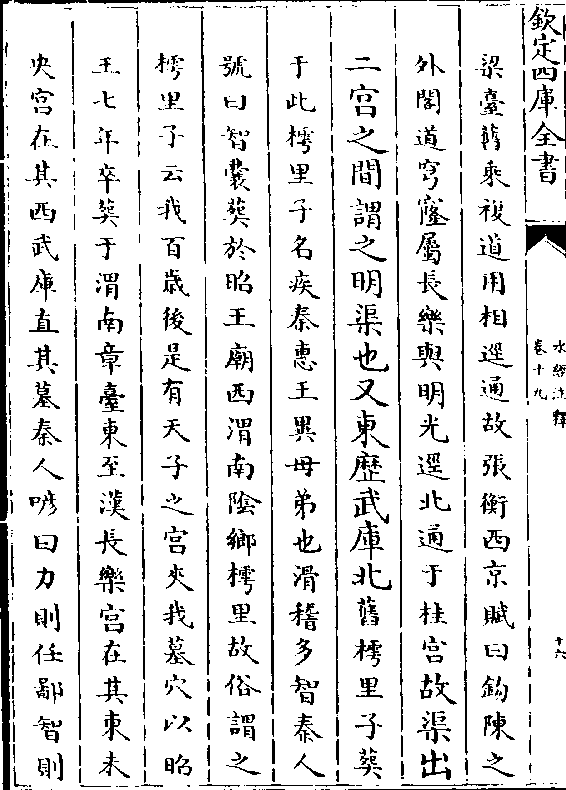 欽定四庫全書
水經注釋
卷十九
十六
梁臺舊乘複道用相逕通故張衡西京賦曰鈎陳之
外閣道穹窿屬長樂與明光逕北通于桂宮故渠出
二宮之間謂之明渠也又東歴武庫北舊樗里子葬
于此樗里子名疾秦恵王異母弟也滑稽多智秦人
號曰智囊葬於昭王廟西渭南陰鄉樗里故俗謂之
樗里子云我百歲後是有天子之宮夾我墓穴以昭
王七年卒葬于渭南章臺東至漢長樂宮在其東未
央宮在其西武庫直其墓秦人喭曰力則任鄙智則